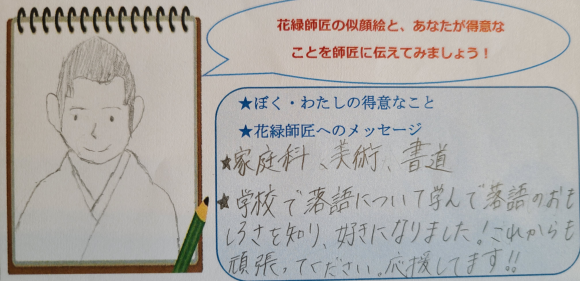 花緑師匠の似顔絵と、あなたが得意な
ことを師匠に伝えてみましょう！
★ぼく・わたしの得意なこと
★花緑師匠へのメッセージ
★家庭科、美術、書道
★学校で落語について学んで落語のおも
しろさを知り、好きになりました！これからも
頑張ってください。応援してます!!